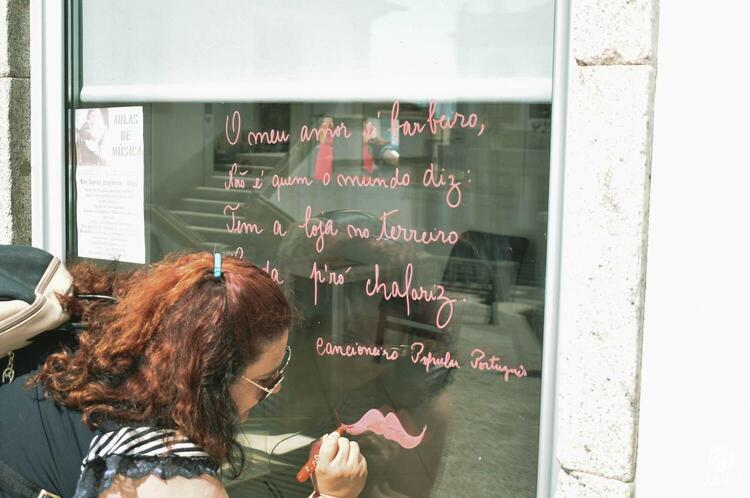 O meu amor é barbeiro,
Não é quem o mundo diz:
Tem a loja no terreiro
da p'ró chafariz.
Cancioneiro Popular Português
AULAS
DE
MÚSICA